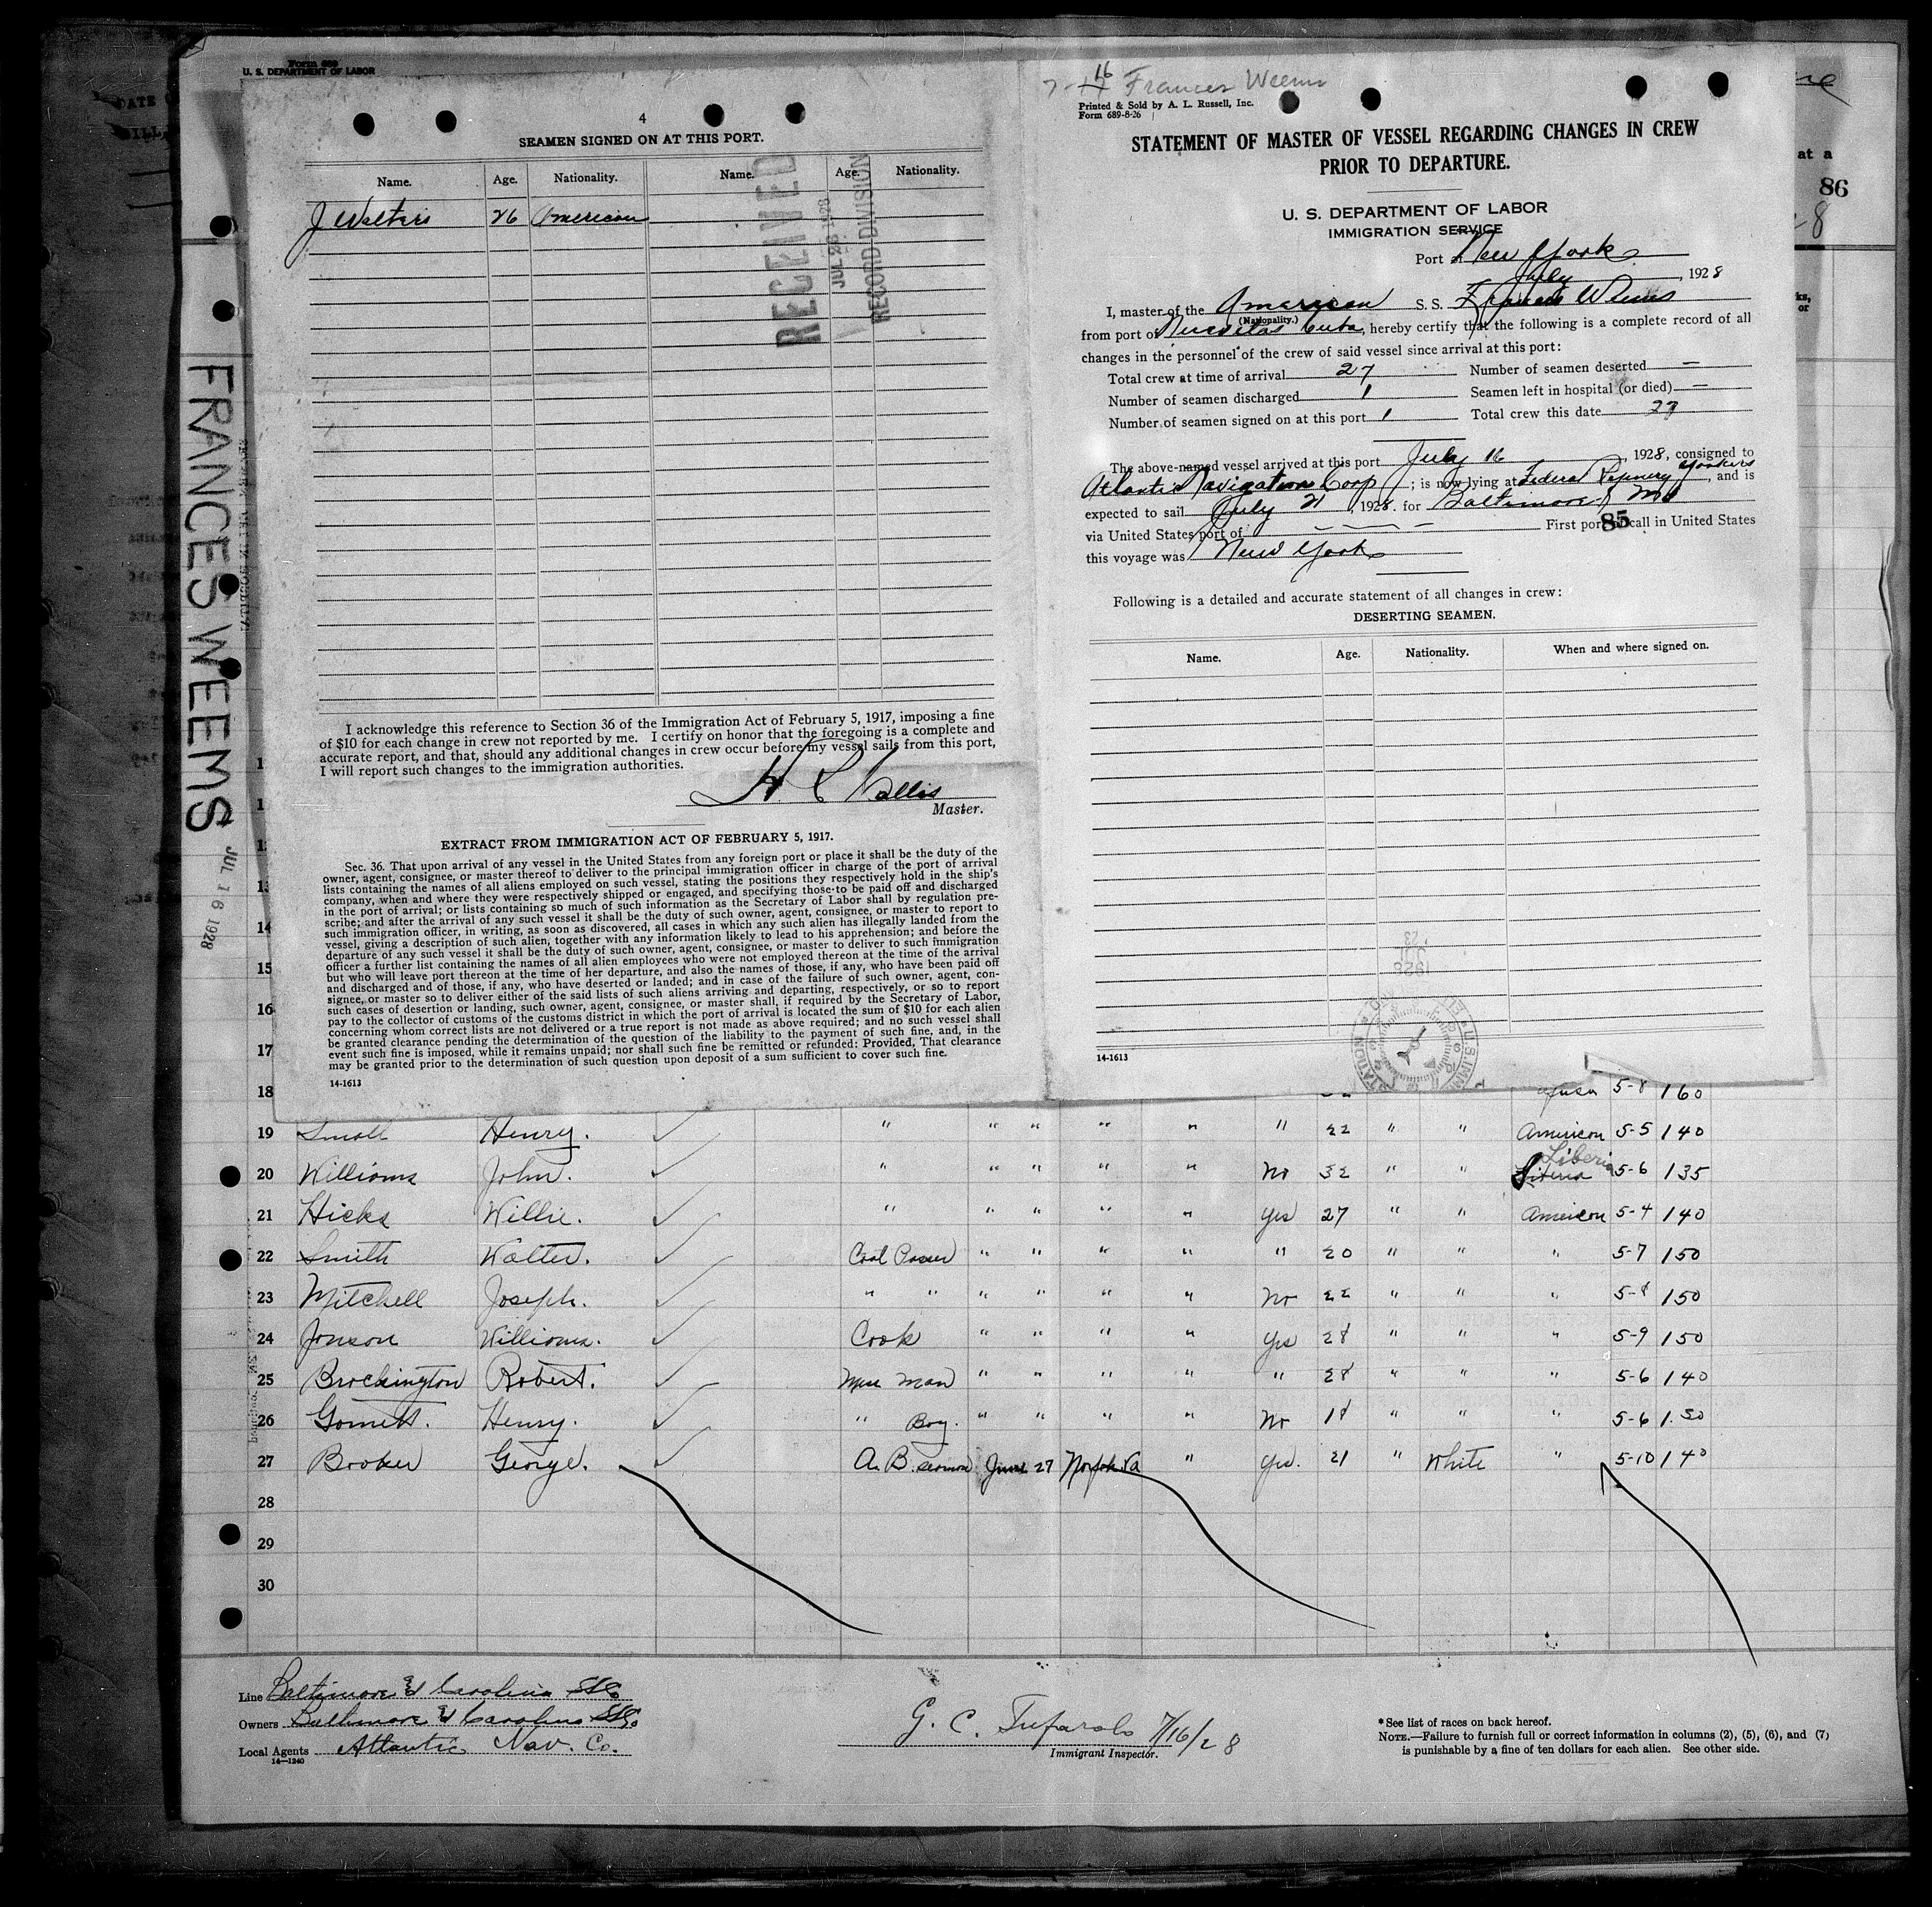 Form 689
U. S. DEPARTMENT OF LABOR
4
SEAMEN SIGNED ON AT THIS PORT.
Name. Age. Nationality. Name. Age. Nationality.
J Walters 26 American
RECEIVED
JUL 26 1928
RECORD DIVISION
I acknowledge this reference to Section 36 of the Immigration Act of February 5, 1917, imposing a fine
of $10 for each change in crew not reported by me. I certify on honor that the foregoing is a complete and
accurate report, and that, should any additional changes in crew occur before my vessel sails from this port,
I will report such changes to the immigration authorities.
Master.
EXTRACT FROM IMMIGRATION ACT OF FEBRUARY 5, 1917.
Sec. 36. That upon arrival of any vessel in the United States from any foreign port or place it shall be the duty of the
owner, agent, consignee, or master thereof to deliver to the principal immigration officer in charge of the port of arrival
lists containing the names of all aliens employed on such vessel, stating the positions they respectively hold in the ship's
company, when and where they were respectively shipped or engaged, and specifying those to be paid off and discharged
in the port of arrival; or lists containing so much of such information as the Secretary of Labor shall by regulation pre-
scribe; and after the arrival of any such vessel it shall be the duty of such owner, agent, consignee, or master to report to
such immigration officer, in writing, as soon as discovered, all cases in which any such alien has illegally landed from the
vessel, giving a description of such alien, together with any information likely to lead to his apprehension; and before the
departure of any such vessel it shall be the duty of such owner, agent, consignee, or master to deliver to such immigration
officer a further list containing the names of all alien employees who were not employed thereon at the time of the arrival
but who will leave port thereon at the time of her departure, and also the names of those, if any, who have been paid off
and discharged and of those, if any, who have deserted or landed; and in case of the failure of such owner, agent, con-
signee, or master so to deliver either of the said lists of such aliens arriving and departing, respectively, or so to report
such cases of desertion or landing, such owner, agent, consignee, or master shall, if required by the Secretary of Labor,
pay to the collector of customs of the customs district in which the port of arrival is located the sum of $10 for each alien
concerning whom correct lists are not delivered or a true report is not made as above required; and no such vessel shall
be granted clearance pending the determination of the question of the liability to the payment of such fine, and, in the
event such fine is imposed, while it remains unpaid; nor shall such fine be remitted or refunded: Provided, That clearance
may be granted prior to the determination of such question upon deposit of a sum sufficient to cover such fine.
14-1613
7-16 Frances Weems
Printed & Sold by A. L. Russell, Inc.
Form 689-8-26
STATEMENT OF MASTER OF VESSEL REGARDING CHANGES IN CREW
PRIOR TO DEPARTURE.
U. S. DEPARTMENT OF LABOR
IMMIGRATION SERVICE
Port New York
July, 1928
I, master of the American S. S. Frances Weems
(Nationality.)
from port of Nuevitas Cuba, hereby certify that the following is a complete record of all
changes in the personnel of the crew of said vessel since arrival at this port:
Total crew at time of arrival 27 Number of seamen deserted —
Number of seamen discharged 1 Seamen left in hospital (or died) —
Number of seamen signed on at this port 1 Total crew this date 27
The above-named vessel arrived at this port July 16, 1928, consigned to
Atlantic Navigation Corp; is now lying at Federal Refinery Yonkers, and is
expected to sail July 21, 1928. for Baltimore Md
via United States port of — — — First port of call in United States
85
this voyage was New York
Following is a detailed and accurate statement of all changes in crew:
DESERTING SEAMEN.
Name. Age. Nationality. When and where signed on.
14-1613
at a
86
FRANCES WEEMS
JUL 16 1928
14
15
16
17
18 5-8 160
19 Small Henry. " " " " " " 22 " " American 5-5 140
20 Williams John. " " " " " No 32 " " Liberia 5-6 135
21 Hicks Willie. " " " " " Yes 27 " " American 5-4 140
22 Smith Walter. Coal Passer " " " " " 20 " " " 5-7 150
23 Mitchell Joseph. " " " " " " No 22 " " " 5-8 150
24 Jonson Williams. Cook " " " " Yes 28 " " " 5-9 150
25 Brockington Robert. Mess Man " " " " " 28 " " " 5-6 140
26 Henry. " Boy. " " " " No 18 " " " 5-6 1.30
27 Booker George. A. B. June 27 Norfolk Va " Yes. 21 " White " 5-10 140
28
29
30
Line Baltimore & Carolina SS Co
Owners Baltimore & Carolina SS Co
Local Agents Atlantic Nav. Co.
14—1240
G. C. Tufarolo 7/16/28
Immigrant Inspector.
* See list of races on back hereof.
NOTE.—Failure to furnish full or correct information in columns (2), (5), (6), and (7)
is punishable by a fine of ten dollars for each alien. See other side.